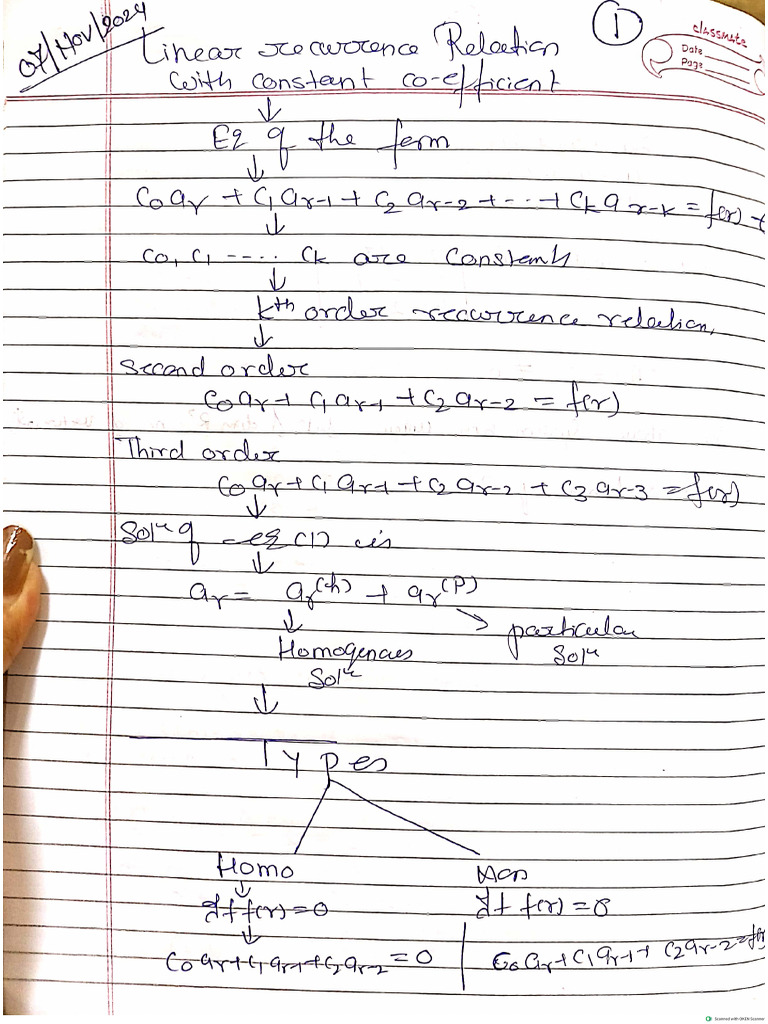 07/Nov/2024
①
classmate
Date
Page
Linear recurrence Relation
with constant co-efficient
↓
Eq of the form
↓
C₀aᵣ + C₁aᵣ₋₁ + C₂aᵣ₋₂ + --- + Cₖaᵣ₋ₖ = f(r) -
↓
C₀, C₁ ---- Cₖ are constants
↓
kᵗʰ order recurrence relation,
↓
Second order
C₀aᵣ + C₁aᵣ₋₁ + C₂aᵣ₋₂ = f(r)
Third order
C₀aᵣ + C₁aᵣ₋₁ + C₂aᵣ₋₂ + C₃aᵣ₋₃ = f(r)
↓
Solⁿ of eq (1) is
↓
aᵣ = aᵣ⁽ʰ⁾ + aᵣ⁽ᴾ⁾
↓ ↘ particular
Solⁿ
Homogenous
Solⁿ
↓
Types
Homo Non
↓
If f(r) = 0 If f(r) = 0
↓
C₀aᵣ + C₁aᵣ₋₁ + C₂aᵣ₋₂ = 0 | C₀aᵣ + C₁aᵣ₋₁ + C₂aᵣ₋₂ = f(r)
Scanned with OKEN Scanner